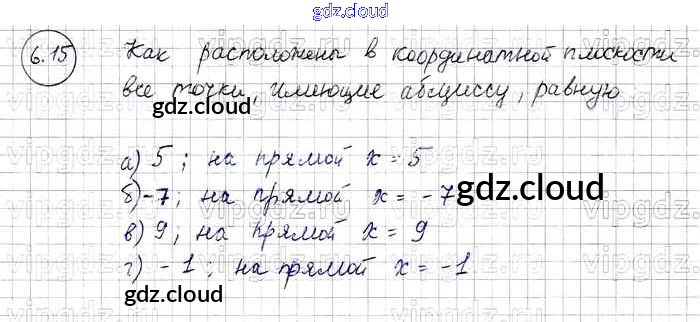 gdz.cloud
6.15 Как расположены в координатной плоскости
все точки, имеющие абциссу, равную
gdz.cloud
а) 5; на прямой x = 5
б) -7; на прямой x = -7
gdz.cloud
в) 9; на прямой x = 9
г) -1; на прямой x = -1
gdz.cloud